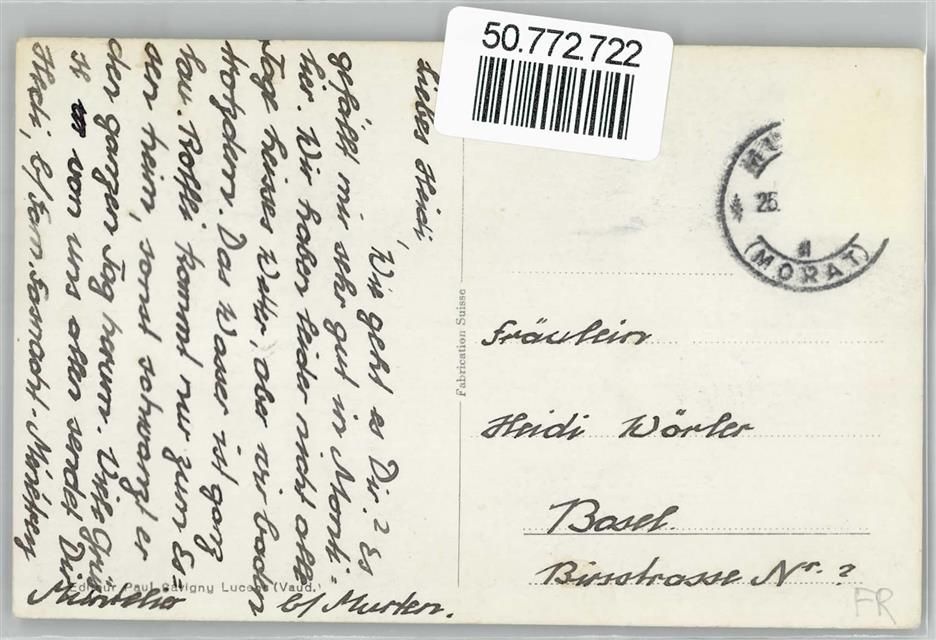 50.772.722
Liebes Heidi,
Wie geht es Dir? Es
gefällt mir sehr gut in Monti=
lier. Wir haben leider nicht alle
Tage heisses Wetter, aber wir baden
trotzdem. Das Wasser ist ganz
lau. Rolfli kommt nur zum Es=
sen heim, sonst schwanzt er
den ganzen Tag herum. Viele Grüs
se von uns allen sendet Dir
Heidi, b/ Fam.
b/ Murten.
Fabrication Suisse
Editeur Paul Savigny Lucens (Vaud.)
25.
(MORAT)
Fräulein
Heidi Wörler
Basel.
Birsstrasse Nr. ?
FR